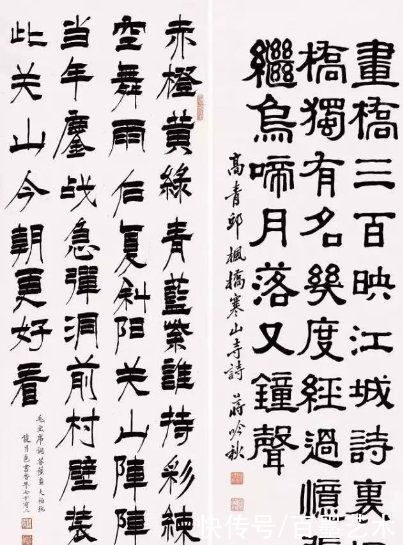 畫橋三百映江城詩裏
橋獨有名幾度經過憶
繼烏啼月落又鐘聲
高青邱楓橋寒山寺詩 蔣吟秋
赤橙黃綠青藍紫誰持彩練
空舞雨后复斜阳关山陣陣
當年鏖战急彈洞前村壁装
此关山今朝更好看
毛主席詞菩薩蠻大柏地
月色書
快传号/百